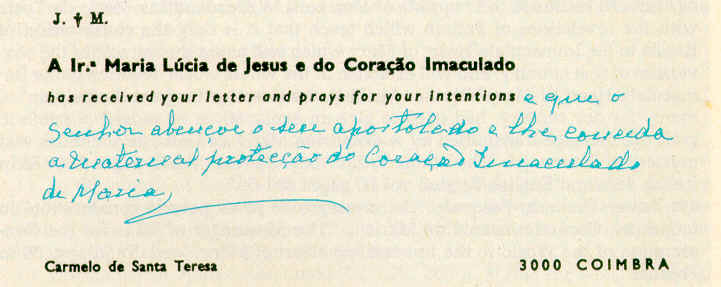 J. † M.
A Ir.ª Maria Lúcia de Jesus e do Coração Imaculado
has received your letter and prays for your intentions e que o
Senhor abençoe o seu apostolado e lhe conceda
a maternal protecção do Coração Imaculado
de Maria
Carmelo de Santa Teresa
3000 COIMBRA